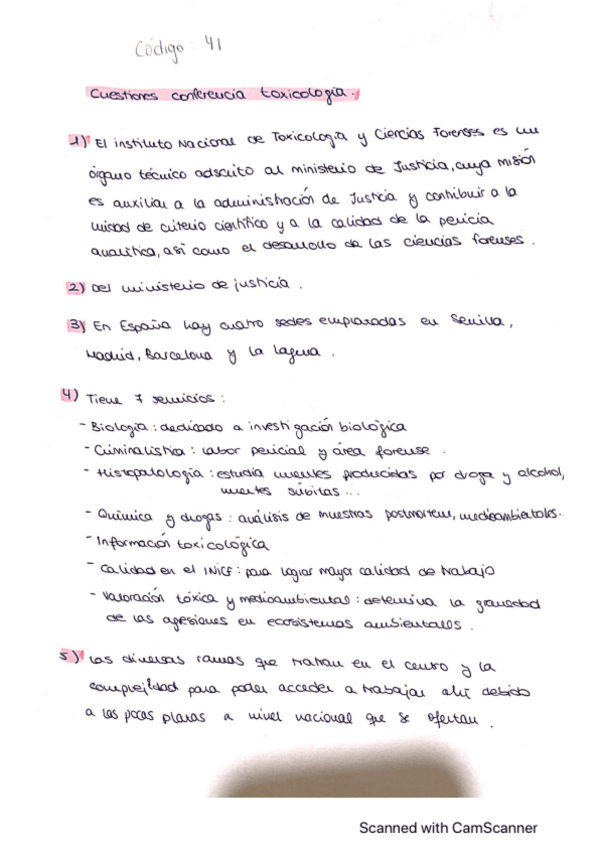 Código 41
Cuestiones conferencia toxicología.
1) El instituto Nacional de Toxicología y Ciencias Forenses es un
órgano técnico adscrito al ministerio de Justicia, cuya misión
es auxiliar a la administración de Justicia y contribuir a la
unidad de criterio científico y a la calidad de la pericia
analítica, así como el desarrollo de las ciencias forenses.
2) Del ministerio de justicia.
3) En España hay cuatro sedes emplazadas en Sevilla,
Madrid, Barcelona y la laguna.
4) Tiene 7 servicios:
- Biología: dedicado a investigación biológica
- Criminalística: labor pericial y área forense.
- Histopatología: estudia muertes producidas por droga y alcohol,
muertes súbitas...
- Química y drogas: análisis de muestras postmortem, medioambientales..
- Información toxicológica
- Calidad en el INICF: para lograr mayor calidad de trabajo
- Valoración tóxica y medioambiental: determina la gravedad
de las agresiones en ecosistemas ambientales.
5) Las diversas ramas que tratan en el centro y la
complejidad para poder acceder a trabajar ahí debido
a las pocas plazas a nivel nacional que se ofertan.
Scanned with CamScanner